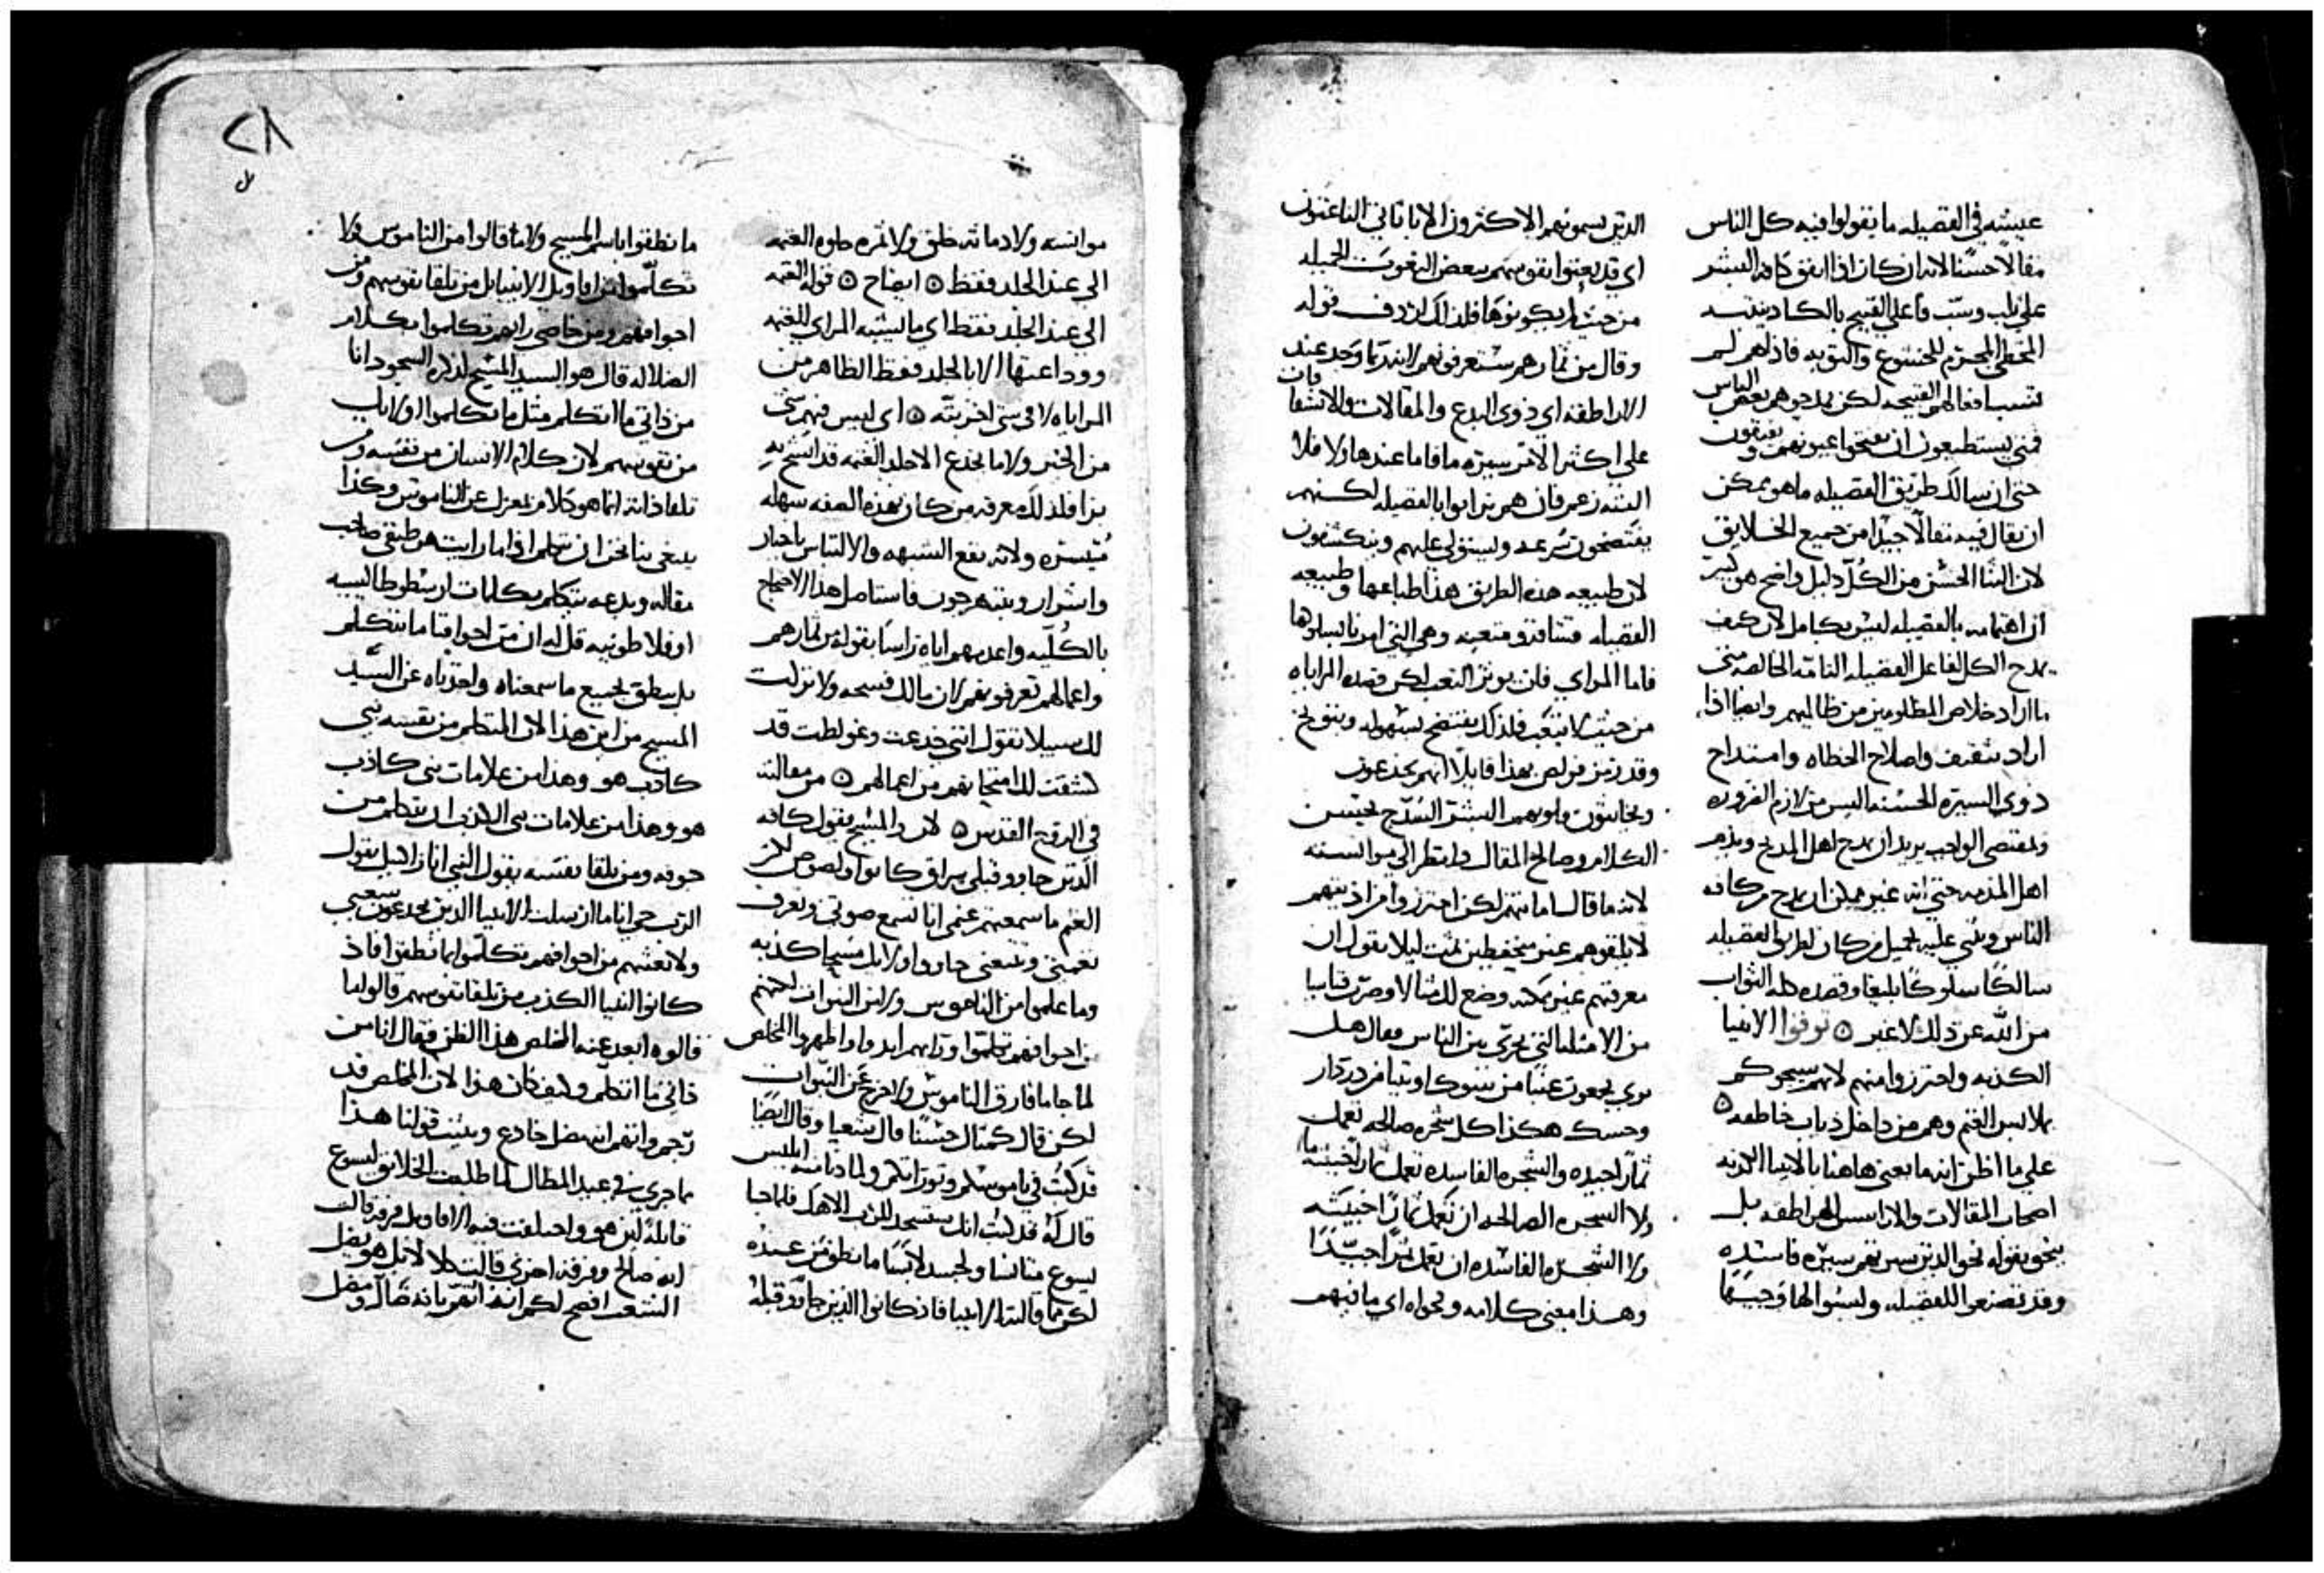 عيشه في الفضيله ما يقولوا فيه كل الناس
مقالاً حسنًا لانه ان كان اذا اتفق كافة البشر
على ثلب وسب فاعلي القبيح بالكاد ينقاد
المخطي المجترم للخشوع والتوبه فاذا هم لم
تسب افعالهم القبيحه لكن يمدحوهم بعض الناس
فمتى يستطيعون ان يفتحوا عيونهم ويفيقون
حتى ان سالك طريق الفضيله ما هو ممكن
ان يقال فيه مقالاً جيدًا من جميع الخلايق
لان الثنا الحسن من الكل دليل واضح هو كبير
ان اهتمامه بالفضيله ليس بكامل لان كيف
يمدح الكل لفاعل الفضيله التامه الخالصه متى
ما اراد خلاص المظلومين من ظالميهم وايضا اذا
اراد تثقيف واصلاح الخطاه وامتداح
ذوي السيره الحسنه اليس من لازم الضروره
ومقتضى الواجب يريد ان يمدح اهل المديح ويذم
اهل المذمه حتى انه غير ممكن ان يمدح من كافة
الناس ويثني عليه بجميل من كان لطريق الفضيله
سالكًا سلوكًا بليغا وقصده طلب الثواب
من الله عن ذلك لا غير ۞ توقوا الانبيا
الكذبه واحترزوا منهم لانهم سيجوكم
بملابس الغنم وهم من داخل ذياب خاطفه ۞
على ما اظن انه ما يعني هاهنا بالانبيا الكذبه
اصحاب المقالات والاراسيس الهراطقه بل
ينحو بقوله نحو الذين سيرتهم سيره فاسده
وقد تصنعوا للفضيله ولبسوا لها وجهًا
الذين يسمونهم الاكثرون الاباتاني الناعتون
اي قد ينعتوا نفوسهم ببعض النعوت الجميله
من حيث لم يكونوها فلذلك اردف قوله
وقال من ثمارهم ستعرفونهم لانه ربما وجد عند
الاراطقه اي ذوي البدع والمقالات والانشقاقات
على اكثر الامر سيره ما فاما عند هاولا فلا
البته زعم فان هم يراءوا بالفضيله لكنهم
يفتضحون بسرعه ويستولى عليهم وينكشفون
لان طبيعه هذه الطريق هذا طباعها وطبيعه
الفضيله مشاقه ومتعبه وهي التي امرنا بسلوكها
فاما المراي فان يوثر التعب لكن قصده المراياه
من حيث لا يتعب فلذلك يفتضح بسهوله ويتوبخ
وقد رمز بولص بهذا قايلا انهم يخدعون
ويخاتلون قلوبهم البشر السذج بحسن
الكلام وصالح المقال وانظر الى موانسته
لانه ما قال امامتهم لكن احترزوا من اذيتهم
لا يلقوهم غير متحفظين ثمت ليلا يقول ان
معرفتهم غير ممكنه وضع للمثالا وضرب قياسا
من الامثله التي تجري بين الناس فقال هل
ترى يجمعون عنبًا من شوك او تينا من دردار
وحسك هكذا كل شجره صالحه تعمل
ثمارًا جيده والشجره الفاسده تعمل ثمارًا خبيثه
ولا الشجره الصالحه ان تعمل ثمارًا خبيثه
ولا الشجره الفاسده ان تعمل ثمرًا جيدًا
وهذا معنى كلامه وفحواه اي ما فيهم
موانسه ولا دماثه خلق ولا ثمره حلوه الغنمه
الى عند الجلد فقط ۞ ايضاح ۞ قوله الغنمه
الى عند الجلد فقط اي ما يشبه المراي للغنمه
ووداعتها الا بالجلد فقط الظاهر من
المراياه لا في شي اخر بته ۞ اي ليس فيهم شي
من الخير ولا ما يخدع الا جلد الغنمه قد اتشح به
برا فلذلك معرفه من كان بهذه الصفه سهله
متيسره ولانه يقع الشبهه والالتباس باخيار
واشرار ويتبهرجون فاستاصل هذا الاحتجاج
بالكليه واعدمهم اياه راسًا بقوله من ثمارهم
واعمالهم تعرفونهم لان مالك فسحه ولا تركت
لك سبيلا تقول انني خدعت وغولطت قد
كشفت لك امتحانهم من اعمالهم ۞ من مقالته
في الروح القدس ۞ لان المسيح يقول كافة
الذين جاوو قبلي سراق كانوا ولصوص لكن
الغنم ما سمعتهم غنمي انا تسمع صوتي وتعرف
نغمتي وتتبعني جاروا اولايك مسحا كذبه
وما علموا من الناموس ولا من النبوات لكنهم
من اجوافهم تكلموا وارايهم ابدوا واظهروا المخلص
لما جا ما فارق الناموس ولا خرج عن النبوات
لكن قال كمثال حسنا قال شعيا وقال ايضًا
قد كتب في ناموسكم وتوراتكم ولما دنا منه ابليس
قال له قد كتب انك ستسجد للرب الاهك فلما جا
يسوع متانسا ولجسد لابسًا ما نطق من عنده
لكن بما قالته الانبيا فاذ كانوا الذين جاوو قبله
ما نطقوا باسم المسيح ولا ما قالوا من الناموس ولا
تكلموا من اقاويل الانبيا بل من تلقا نفوسهم ومن
اجوافهم ومن خاصي رايهم تكلموا بكلام
الضلاله قال هو السيد المسيح لذكره السجود انا
من ذاتي ما اتكلم مثل ما تكلموا اولايك
من نفوسهم لان كلام الانسان من نفسه ومن
تلقا ذاته انما هو كلام بمعزل عن الناموس وكذا
ينبغي بنا نحن ان نتكلم اذا ما رايت هرطقي صاحب
مقاله وبدعه يتكلم بكلمات ارسطوطاليسيه
او فلاطونيه قل له ان من اجوافنا ما نتكلم
بل ننطق بجميع ما سمعناه واخذناه عن السيد
المسيح من اين هذا الان المتكلم من نفسه نبي
كاذب هو وهذا من علامات نبي كاذب
هو وهذا من علامات نبي الكذب ان يتكلم من
جوفه ومن تلقا نفسه يقول النبي انا زاخيل يقول
الرب حي انا ما ارسلت الانبيا الذين يخدعون شعبي
ولا بعثتهم من اجوافهم تكلموا بما نطقوا فاذ
كانوا النبيا الكذب من تلقا نفوسهم قالوا ما
قالوه ابعد عنه المخلص هذا الظن فقال انا من
ذاتي ما اتكلم وكيف كان هذا لان المخلص قد
رجم واتهم انه مضل خادع ويثبت قولنا هذا
ما جرى في عيد المظال لما طلبت الخلايق ليسوع
قايله اين هو واختلفت فيه الاقاويل ففرقه قالت
انه صالح وفرقه اخرى قالت كلا لا بل هو يضل
الشعب افصح لكم انه انقرف بانه ضال ومضل